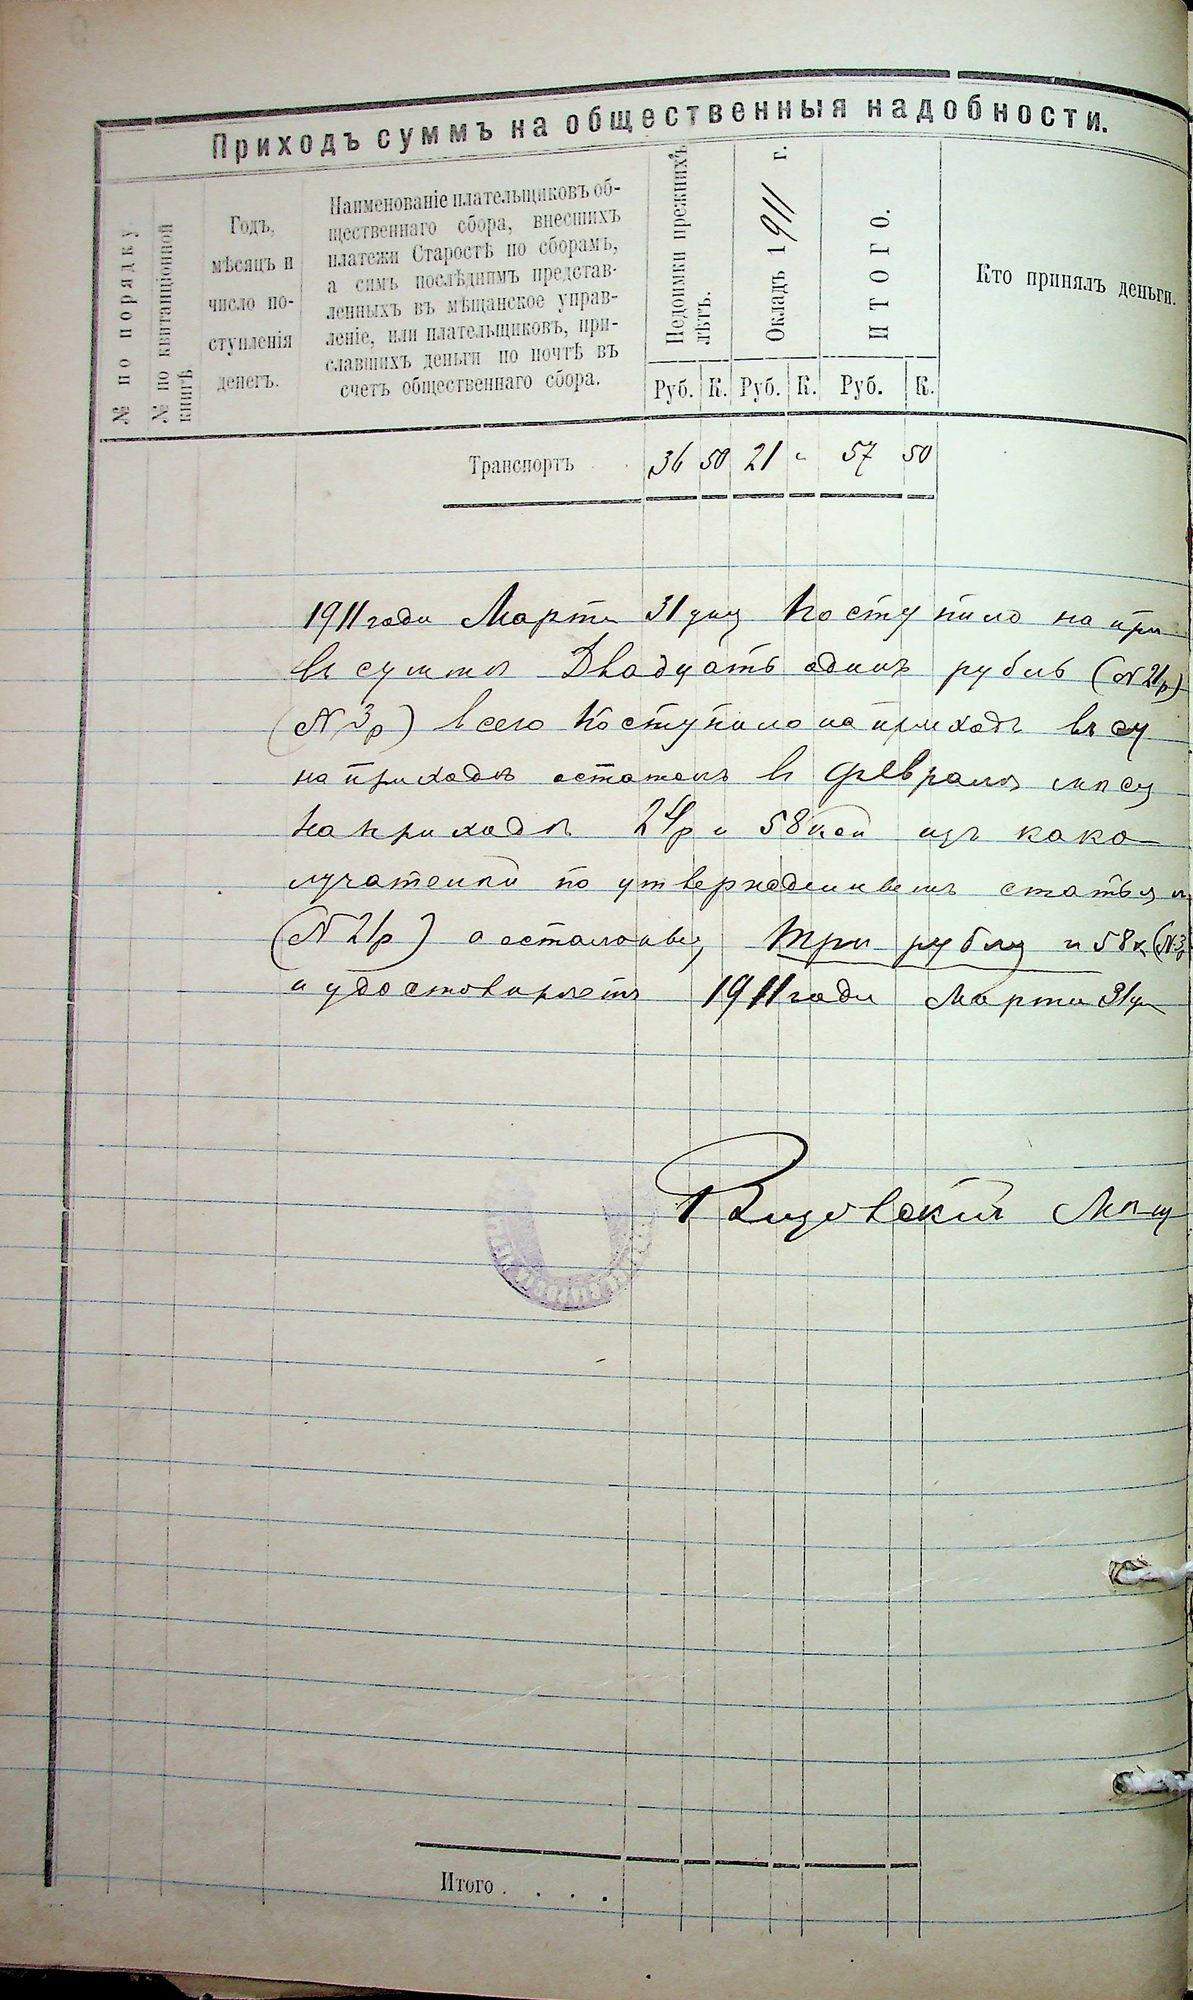 Приходъ суммъ на общественныя надобности.
№ по порядку.
№ по квитанціонной
книгѣ
Годъ,
мѣсяцъ и
число по-
ступленія
денегъ.
Наименованіе плательщиковъ об-
щественнаго сбора, внесшихъ
платежи Старостѣ по сборамъ,
а симъ послѣднимъ представ-
ленныхъ въ мѣщанское управ-
леніе, или плательщиковъ, при-
славшихъ деньги по почтѣ въ
счетъ общественнаго сбора.
Недоимки прежнихъ
лѣтъ.
Окладъ 1911 г.
ИТОГО.
Кто принялъ деньги.
Руб. К. Руб. К. Руб. К.
Транспортъ 36 50 21 " 57 50
1911 года Марта 31 дня Поступило на при
въ сумме Двадцать одинъ рубль (N 21р)
(N 3р) всего поступило на приходъ въ су
на приходъ остатокъ въ Февраля
на приходъ 24р и 58 коп изъ како
по статья
(N 21р) осталоква три рубля и 58к (N 3р
и удостоверяетъ 1911 года Марта 31
Итого . . . .